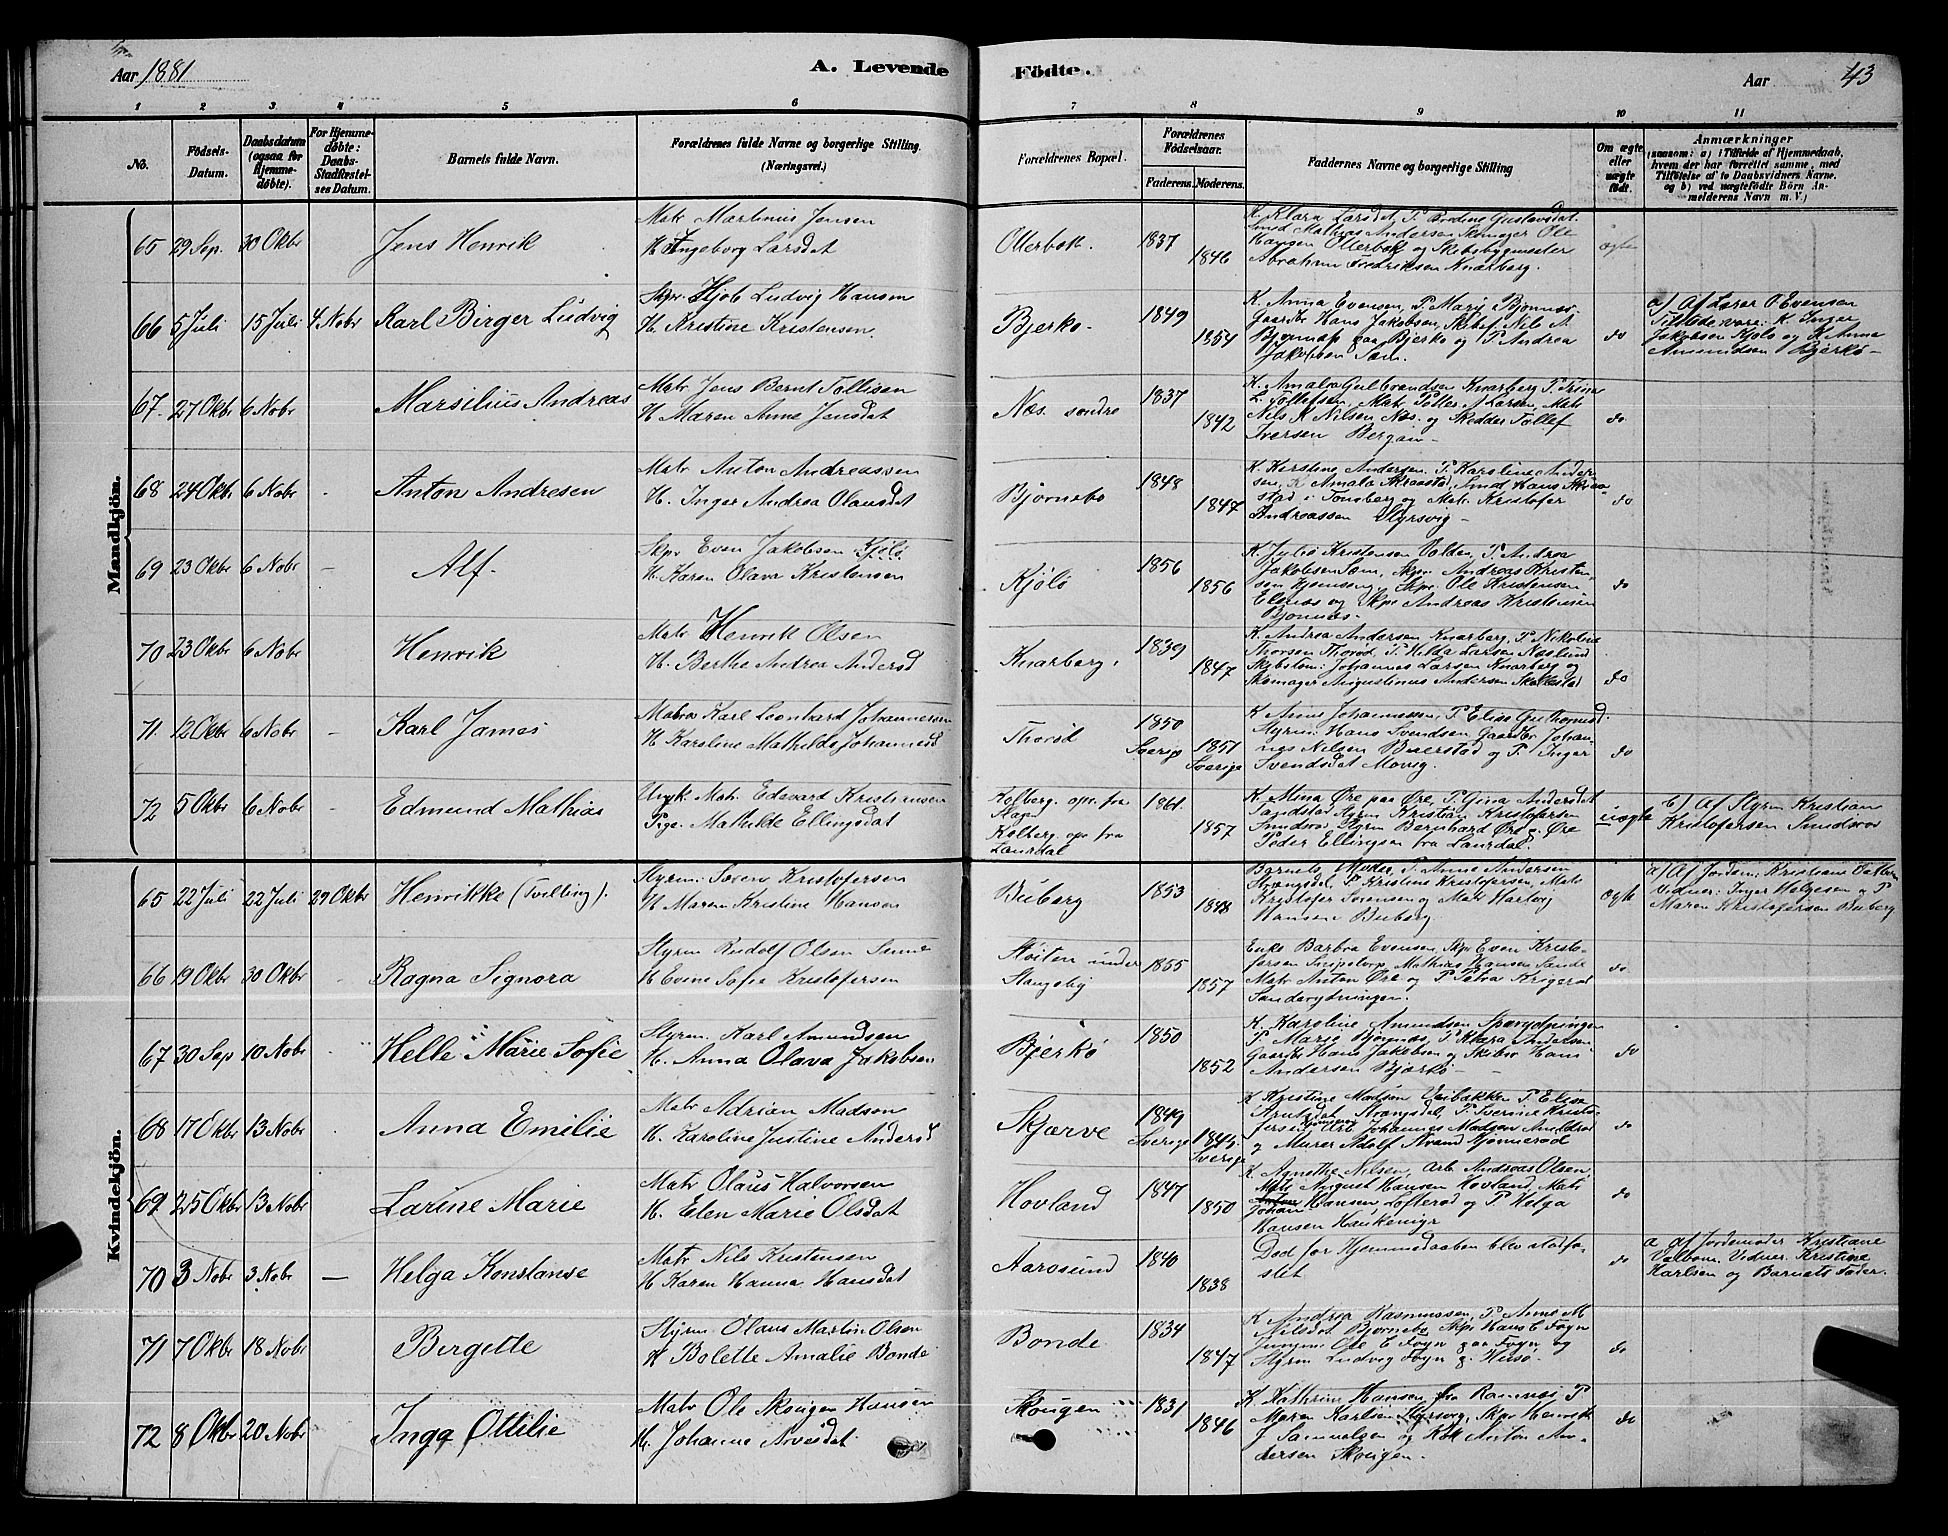 Aar 1881
A. Levende Födte.
Aar
43
1 2 3 4 5 6 7 8 9 10 11
No.
Födsels-Datum.
Daabsdatum (ogsaa for Hjemme-döbte).
For Hjemme-döbte: Daabs-Stadfæstel-ses Datum.
Barnets fulde Navn.
Forældrenes fulde Navne og borgerlige Stilling.
(Næringsvei.)
Forældrenes Bopæl.
Forældrenes Födselsaar.
Faderens. Moderens.
Faddernes Navne og borgerlige Stilling
Om ægte eller uægte födt.
Anmærkninger
(saasom: a) i Tilfælde af Hjemmedaab,
hvem der har forrettet samme, med
Tilföielse af to Daabsvidners Navne.
og b) ved uægtefödte Börn An-
melderens Navn m. V.)
Mandkjön.
65 29 Sep. 30 Okbr Jens Henrik
Matr Martinus Jensen
H Ingeborg Larsdat
Ollerbok. 1837 1846
K. Klara Larsdat, P. Bredine Gustavsdat.
Smed Mathias Andersen Skomager Ole
Hansen Ollerbok og Skibsbygmester
Abraham Fredriksen Knarberg.
ægte
66 5 Juli 15 Juli 4 Nobr Karl Birger Ludvig
Skpr. Hjob Ludvig Hansen
H. Kristine Kristensen
Bjerkø 1849 1854
K. Anna Evensen, P. Marie Bjønnes
Gaardbr Hans Jakobsen, Nils A
Bjønnæs paa Bjerkø og P. Andrea
Jakobsen Sem.
do
a) Af Lærer O. Evensen
Tilstede vare: K. Inger
Jakobsen Kjølø og K Anna
Amundsen Bjerkø -
67. 27 Okbr 6 Nobr Marsilius Andreas
Matr Jens Bernt Tollefsen
H Maren Anne Jensdat
Næs. søndre 1837 1842
K. Amalia Gulbrandsen Knarberg P. Trina
L. Tollefsen, Matr Peder A Larsen, Matr
Nils K Nilsen Næs. og Skredder Tollef
Iversen Bergan -
do
68 24 Okbr 6 Nobr - Anton Andresen
Matr Anton Andreassen
H. Inger Andrea Olausdat
Bjørnebo 1848 1847
K. Kirstine Andersen. P. Karoline Ander-
sen, K Amalia Skraastad, Smed Hans Skraa-
stad i Tønsberg og Matr Kristofer
Andreassen Styrsvig -
do
69 23 Okbr 6 Nobr - Alf.
Skpr Even Jakobsen Kjølø
H. Karen Olava Kristensen
Kjølø 1856 1856
K. Julie Kristensen Valden, P. Andrea
Jakobsen Sem, Skpr Andreas Kristen-
sen Hjemseng, Skpr Ole Kristensen
Elenes og Skpr Andreas Kristensen
Bjønnes.
do
70 23 Okbr 6 Nobr Henrik
Matr Henrik Olsen
H. Berthe Andrea Andersd
Knarberg, 1839 1847
K. Andrea Andersen Knarberg, P. Nikoline
Thorsen Thorød P. Hilda Larsen Næslund
Skibstøm: Johannes Larsen Knarberg og
Skomager Augustinus Andersen Skallestad
do
71. 12 Okbr 6 Nobr - Karl James
Matros Karl Leonhard Johannesen
H Karoline Mathilde Johannesd
Thorød 1850 Sverige 1851 Sverige
K Anne Johannessen, P. Elise Guthormsd.
Styrm: Hans Svendsen Gaardbr Johan-
nes Nilsen Buerstad og P. Inger
Svendsdat Movig.
do
72 5 Okbr 6 Nobr - Edmund Mathias
Ungk. Matr. Edevard Kristiansen
Pige. Mathilde Ellingsdat
Kolberg. opr. fra
Slagen
Kolberg. opr fra
Laurdal
1861. 1857
K. Mina Øre paa Øre, P. Gina Andersdat
Sandstad Styrm Kristian Kristofersen
Smidsrød Styrm Bernhard Øre og Øre
Peder Ellingsen fra Laurdal.
uægte
b) Af Styrm Kristian
Kristofersen Smidsrød
Kvindekjön.
65 22 Juli 22 Juli 29 Okbr Henrikke (Tvilling).
Styrm: Søren Kristofersen
H Maren Kristine Hansen
Buberg 1853 1848
Barnets Moder, P. Anne Andersen
Strængsdal, P Kristine Kristofersen, Matr
Kristofer Sørensen og Matr Hartvig
Hansen Buberg.
ægte
a) Af Jordem: Kristiane Valbom
Vidner: Inger Helgesen & P
Maren Kristofersen Buberg
66 19 Okbr 30 Okbr Ragna Signora
Styrm Rudolf Olsen Sunne
H Evine Sofie Kristofersen
Støiten under
Stangeby
1855 1857
Enke Barbra Evensen, Skpr Even Kristo-
fersen Snipetorp Mathias Hansen Sande
Matr Anton Øre og P Petra Krigerød
Sanderydningen.
do
67 30 Sep 10 Nobr Helle Marie Sofie
Styrm. Karl Amundsen
H. Anna Olava Jakobsen
Bjerkø 1850 1852
K. Karoline Amundsen Sperydningen
P. Marie Bjønnes, P. Klara Andersen
Gaardbr Hans Jakobsen og Skibsr Hans
Andersen Bjerkø -
do
68 17 Okbr 13 Nobr Anna Emilie
Matr Adrian Madsen
H. Karoline Justine Andersd
Skjærve 1849 Sverige 1846 Sverige
K Kristine Madsen Veibakken P. Elise
Arntsdat Strengsdal, P. Severine Kristo-
fersen, Arb Johannes Madsen Amildrød
og Murer Adolf Strand Hjønnerød
do
69 25 Okbr 13 Nobr Larine Marie
Matr Olaus Halvorsen
H. Elen Marie Olsdat
Hovland 1847 1850
K Agnethe Nilsen, Arb Andreas Olsen
Matr August Hansen Hovland, Matr
Johan Hansen Lofterød og P. Helga
Hansen Haukemyr
do
70 3 Nobr 3 Nobr - Helga Konstanse
Matr Nils Kristensen
H Karen Hanna Hansdat
Aarøsund 1840 1838
Død før Hjemmedaaben blev stadfæ-
stet
do
a af Jordemoder Kristiane
Valbom. Vidner. Kristine
Karlsen og Barnets Fader.
71 7 Okbr 18 Nobr Bergette
Styrm Olaus Martin Olsen
H Bolette Amalie Bonde
Bonde 1834 1847
K Andrea Rasmussen, P. Anne M
Nilsdat Bjørnebo, Skpr Hans E Fogn
Jungm: Ole E Fogn paa Fogn og
Styrm Ludvig Fogn p. Husø.
do
72 8 Okbr 20 Nobr Inga Ottilie
Matr Ole Skougen Hansen
H. Johanne Arvesdat
Skougen 1831 1846
K Kathrine Hansen fra Ramnes P
Maren Karlsen Styrsvig, Skpr Henrik
J Samuelsen og Kok Anton An-
dersen Skougen.
do